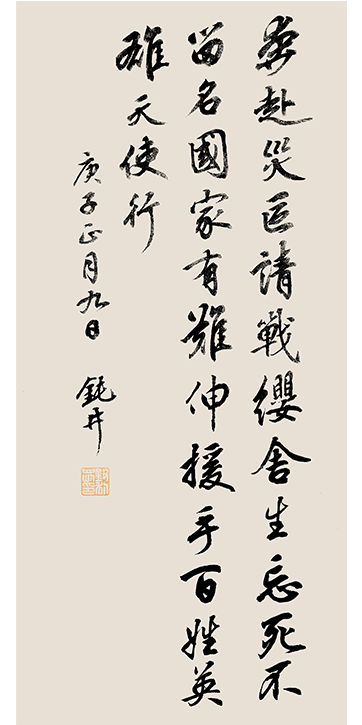 奔赴災區請戰纓舍生忘死不
留名國家有難伸援手百姓英
雄天使行
庚子正月九日 鈍井